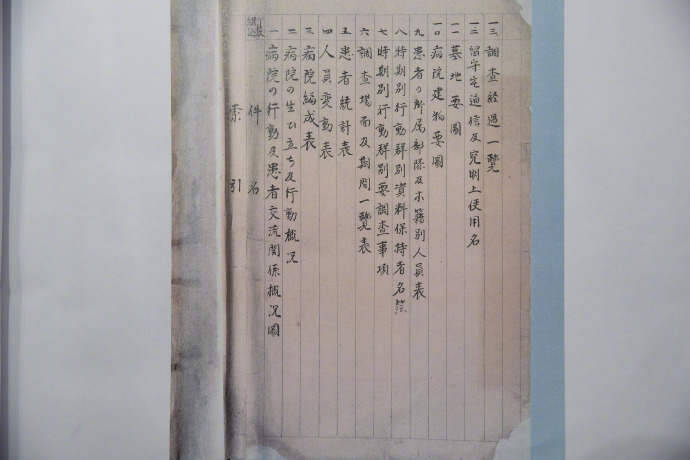 件名
索引
一 病院の行動及患者交流関係概況図
二 病院の生ひ立ち及行動概況
三 病院編成表
四 人員変動表
五 患者統計表
六 調査場面及期間一覧表
七 時期別行動群別要調査事項
八 時期別行動群別資料保持者名簿
九 患者の所属部隊及本籍別人員表
一〇 病院建物要図
一一 墓地要図
一二 留守宅通信及究明上使用名
一三 調査経過一覧